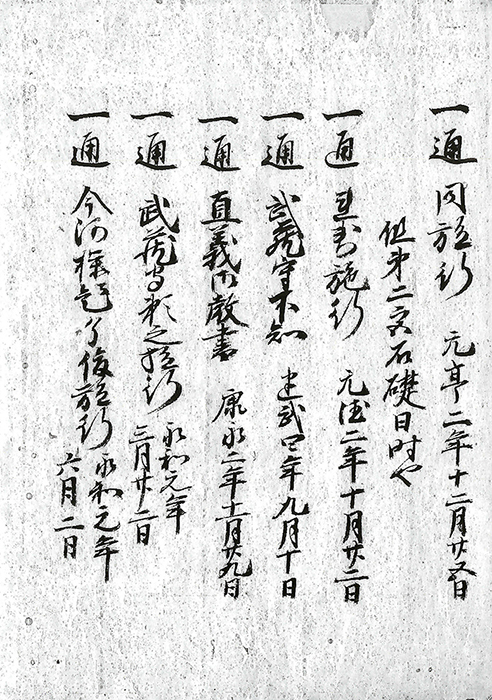 一通 同施行 元亨二年十二月廿五日
但第二度石礎日時也
一通 施行 元徳二年十月廿二日
一通 武蔵守下知 建武四年九月十日
一通 直義御教書 康永二年十一月廿九日
一通 武蔵守 之施行 永和元年三月廿二日
一通 今河 了俊施行 永和元年六月二日